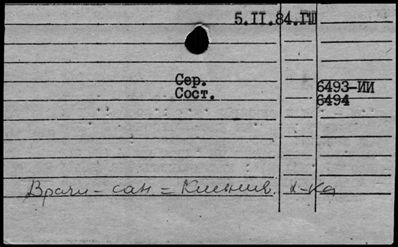 5.II.84.ГШ
Сер.
Сост.
6493-ИИ
6494
Врачи-сан=